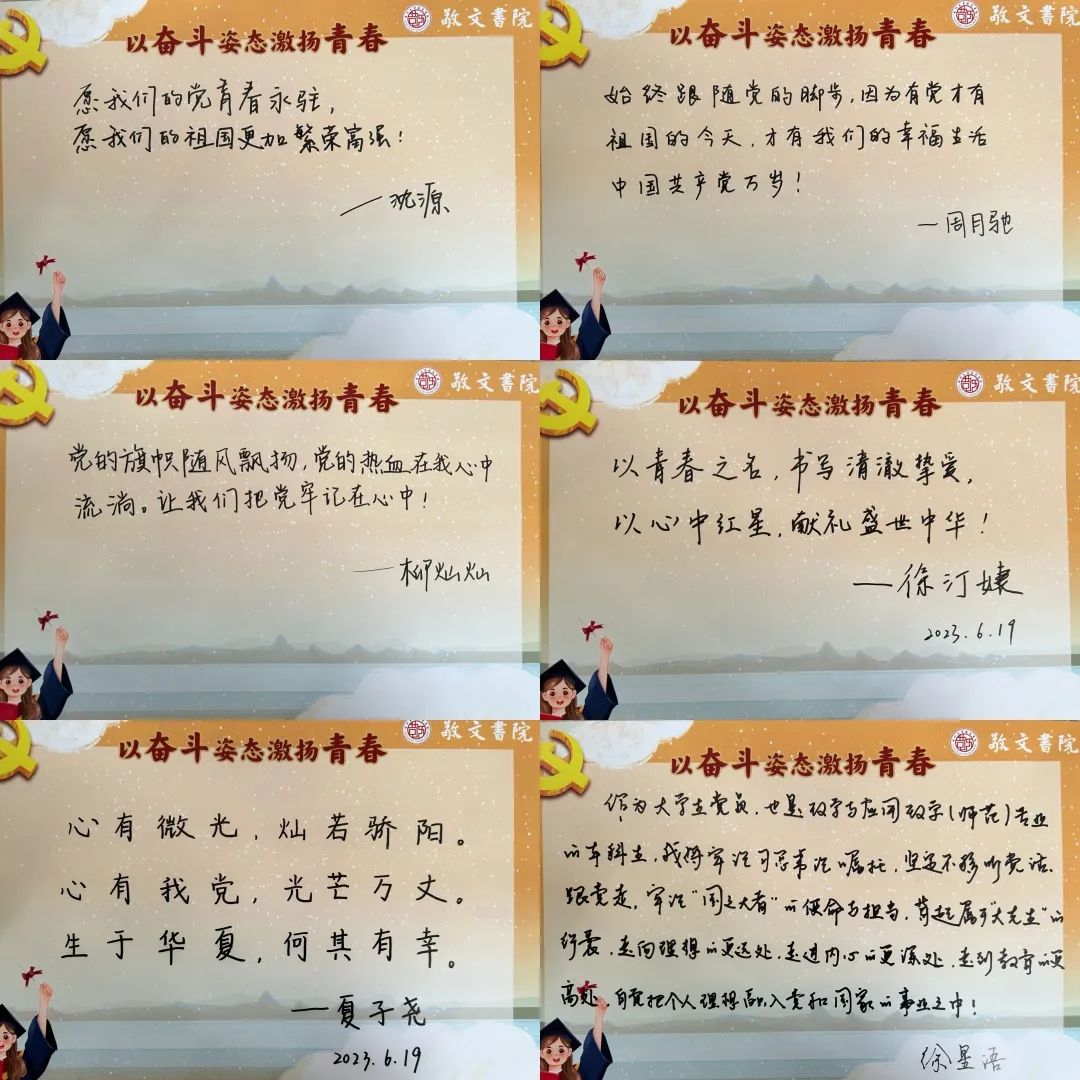 敬文書院
以奋斗姿态激扬青春
愿我们的党青春永驻，
愿我们的祖国更加繁荣富强！
——沈源
敬文書院
以奋斗姿态激扬青春
始终跟随党的脚步，因为有党才有
祖国的今天，才有我们的幸福生活
中国共产党万岁！
—周月驰
敬文書院
以奋斗姿态激扬青春
党的旗帜随风飘扬，党的热血在我心中
流淌。让我们把党牢记在心中！
——柳灿灿
敬文書院
以奋斗姿态激扬青春
以青春之名，书写清澈挚爱，
以心中红星，献礼盛世中华！
——徐汀
2023.6.19
敬文書院
以奋斗姿态激扬青春
心有微光，灿若骄阳。
心有我党，光芒万丈。
生于华夏，何其有幸。
——夏子尧
2023.6.19
敬文書院
以奋斗姿态激扬青春
作为大学生党员，也是数学与应用数学(师范)专业
的本科生，我将牢记习总书记嘱托，坚定不移听党话、
跟党走，牢记“国之大者”的使命与担当，肩起属于“大先生”的
行囊，走向理想的更远处，走进内心的更深处，走到教育的更
高处，自觉把个人理想融入党和国家的事业之中！
徐星语